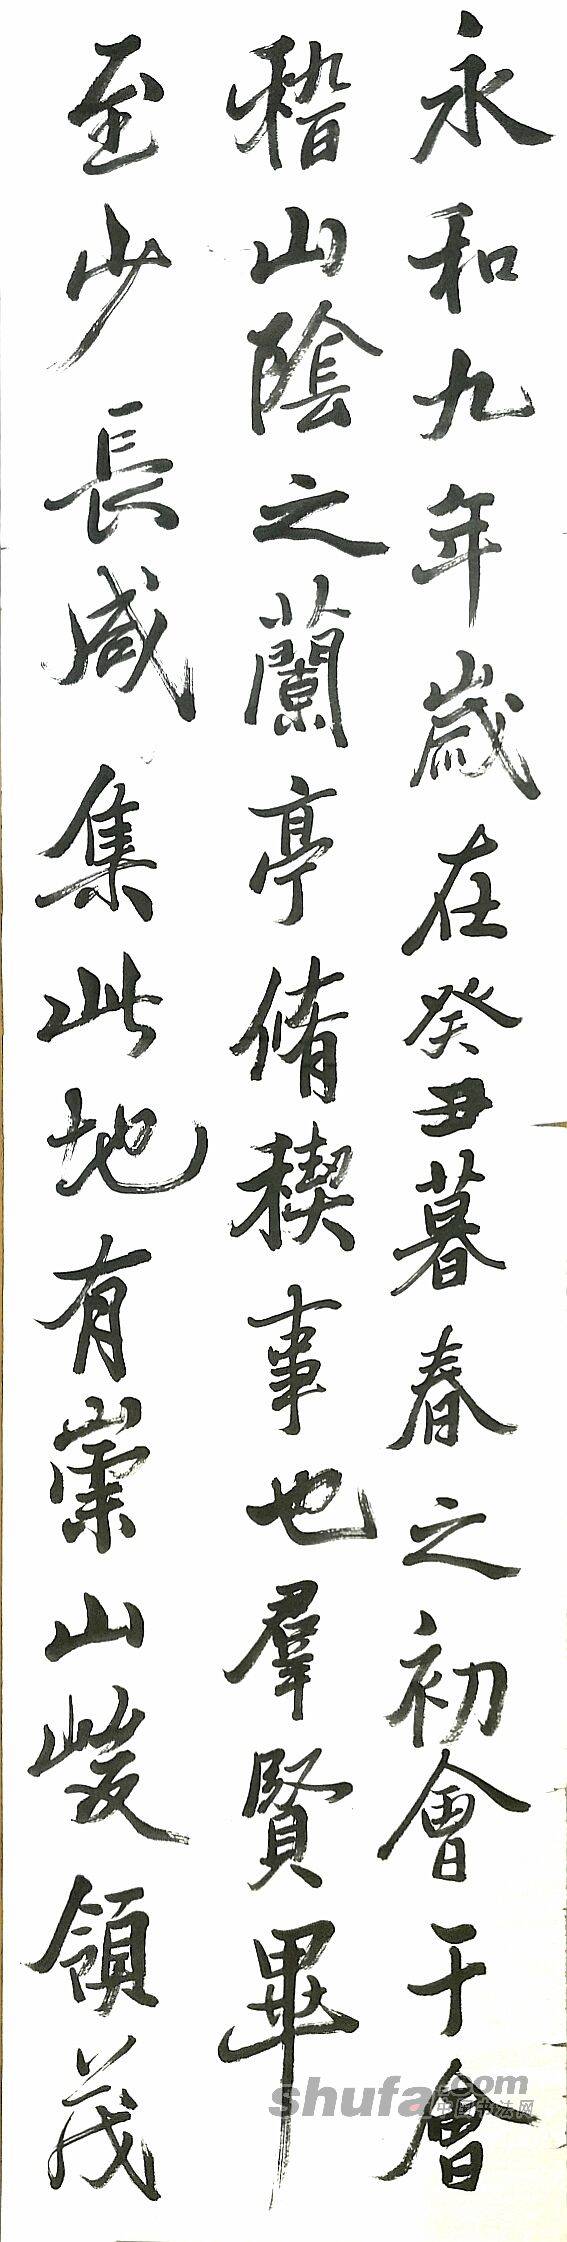 永和九年歲在癸丑暮春之初會于會
稽山陰之蘭亭脩稧事也羣賢畢
至少長咸集此地有崇山峻領茂
shufa.com
中国书法网